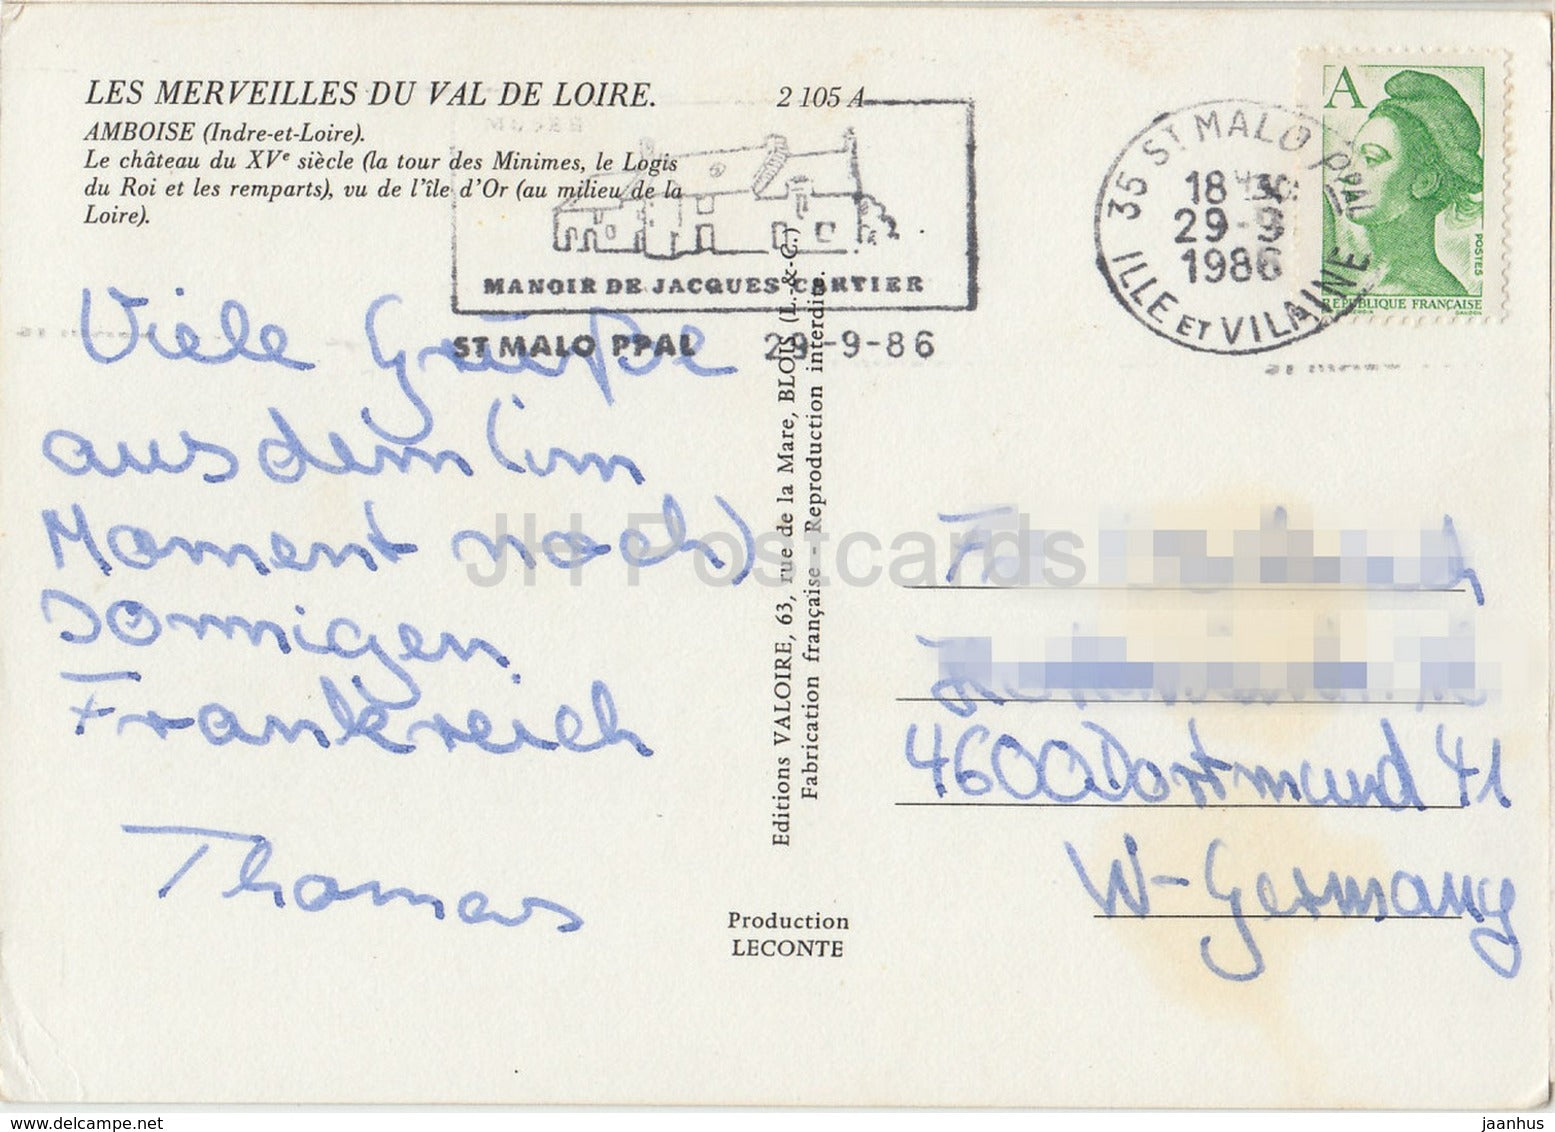 LES MERVEILLES DU VAL DE LOIRE. 2 105 A
AMBOISE (Indre-et-Loire).
Le château du XVe siècle (la tour des Minimes, le Logis
du Roi et les remparts), vu de l'île d'Or (au milieu de la
Loire).
MANOIR DE JACQUES CARTIER
ST MALO PPAL 29-9-86
35 ST MALO PPAL
18 H 30
29-9
1986
ILLE ET VILAINE
A
POSTES
REPUBLIQUE FRANÇAISE
GANDON
Viele Grüße
aus dem (im
Moment noch)
sonnigen
Frankreich
Thomas
Editions VALOIRE, 63, rue de la Mare, BLOIS (L.-&-C.)
Fabrication française - Reproduction interdite.
Production
LECONTE
4600 Dortmund 41
W-Germany
JH Postcards
www.delcampe.net
jaanhus